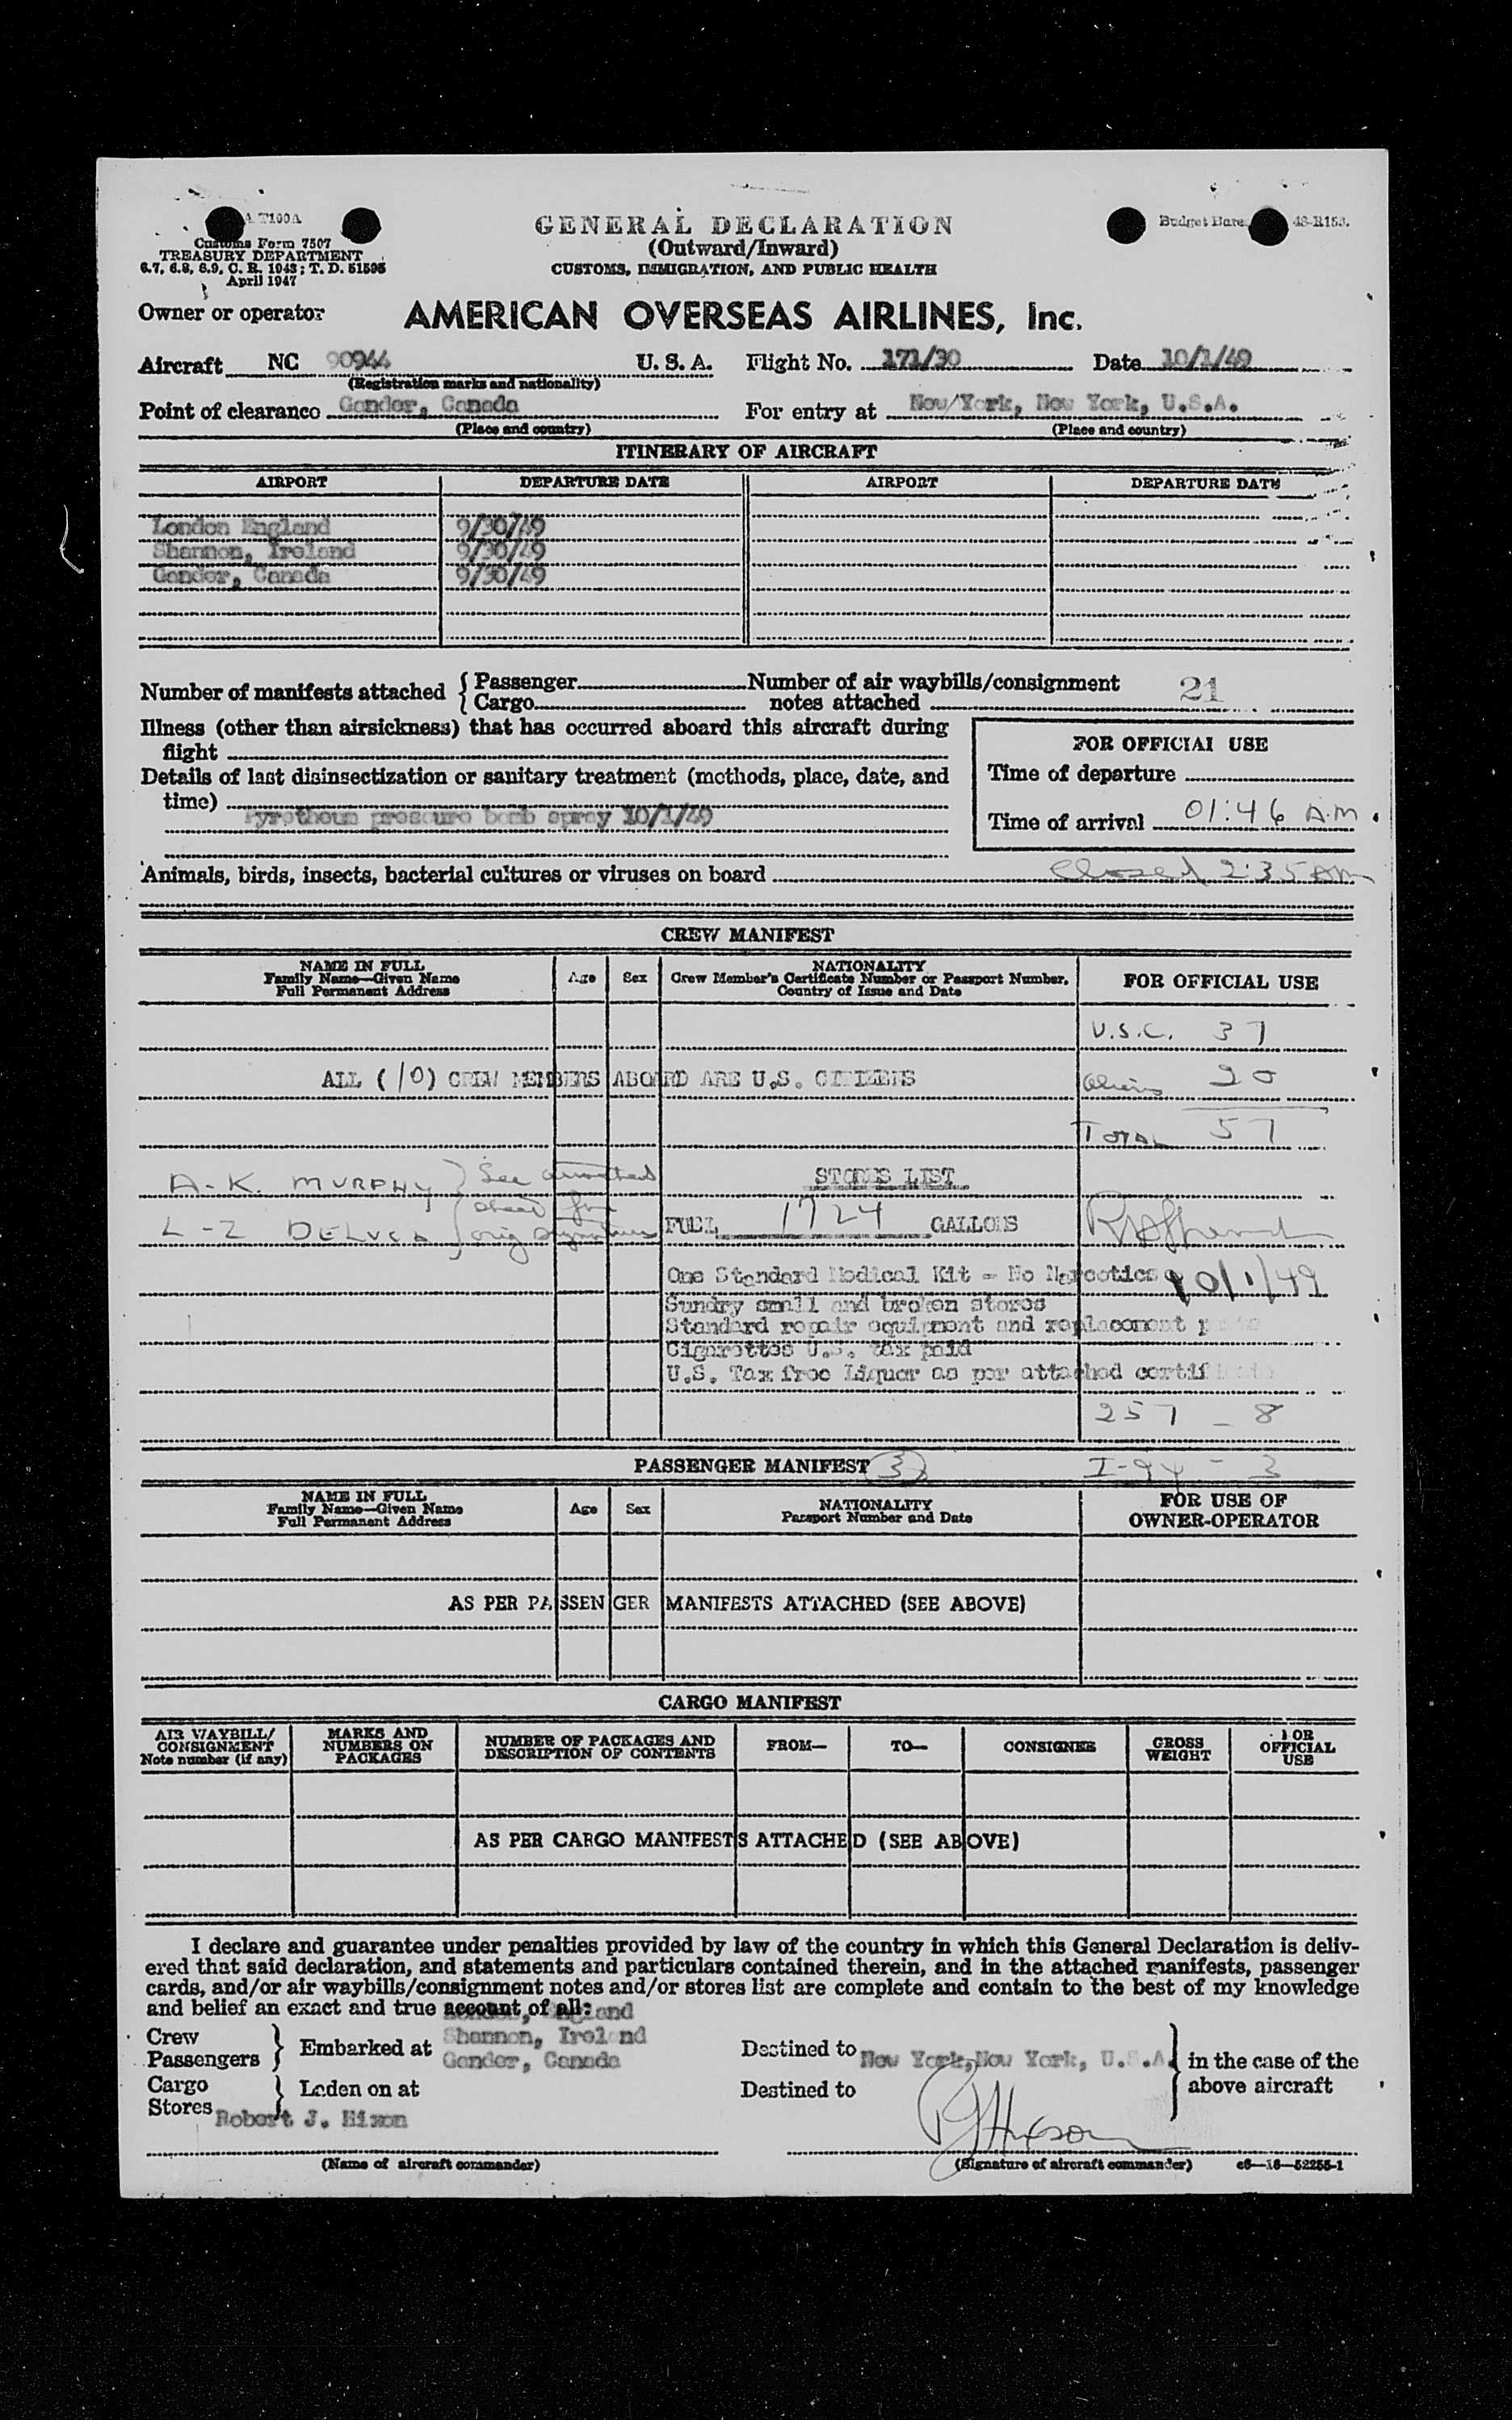 A T100A
Customs Form 7507
TREASURY DEPARTMENT
6.7, 6.8, 6.9, C. R. 1943; T. D. 51595
April 1947
GENERAL DECLARATION
(Outward/Inward)
CUSTOMS, IMMIGRATION, AND PUBLIC HEALTH
Budget Bureau 48-R153.
Owner or operator AMERICAN OVERSEAS AIRLINES, Inc.
Aircraft NC 90944 U. S. A. Flight No. 171/30 Date 10/1/49
(Registration marks and nationality)
Point of clearance Gander, Canada For entry at New York, New York, U.S.A.
(Place and country) (Place and country)
ITINERARY OF AIRCRAFT
AIRPORT DEPARTURE DATE AIRPORT DEPARTURE DATE
London England 9/30/49
Shannon, Ireland 9/30/49
Gander, Canada 9/30/49
Number of manifests attached { Passenger Number of air waybills/consignment 21
Cargo notes attached
Illness (other than airsickness) that has occurred aboard this aircraft during
flight
FOR OFFICIAL USE
Details of last disinsectization or sanitary treatment (methods, place, date, and
time)
Time of departure
Pyrethrum pressure bomb spray 10/1/49
Time of arrival 01:46 A.M.
Animals, birds, insects, bacterial cultures or viruses on board Closed 2:35 AM
CREW MANIFEST
NAME IN FULL
Family Name—Given Name
Full Permanent Address
Age Sex
NATIONALITY
Crew Member's Certificate Number or Passport Number,
Country of Issue and Date
FOR OFFICIAL USE
U.S.C. 37
ALL (10) CREW MEMBERS ABOARD ARE U.S. CITIZENS
Aliens 20
TOTAL 57
A-K. MURPHY } See attached
STORES LIST
sheet for
L-Z orig signatures
FUEL 1724 GALLONS
One Standard Medical Kit - No Narcotics
10/1/49
Sundry small and broken stores
Standard repair equipment and replacement parts
Cigarettes U.S. tax paid
U.S. Tax free Liquor as per attached certificate
257 - 8
PASSENGER MANIFEST
I-94 - 3
NAME IN FULL
Family Name—Given Name
Full Permanent Address
Age Sex
NATIONALITY
Passport Number and Date
FOR USE OF
OWNER-OPERATOR
AS PER PASSENGER MANIFESTS ATTACHED (SEE ABOVE)
CARGO MANIFEST
AIR WAYBILL/
CONSIGNMENT
Note number (if any)
MARKS AND
NUMBERS ON
PACKAGES
NUMBER OF PACKAGES AND
DESCRIPTION OF CONTENTS
FROM— TO— CONSIGNEE
GROSS
WEIGHT
FOR
OFFICIAL
USE
AS PER CARGO MANIFESTS ATTACHED (SEE ABOVE)
I declare and guarantee under penalties provided by law of the country in which this General Declaration is deliv-
ered that said declaration, and statements and particulars contained therein, and in the attached manifests, passenger
cards, and/or air waybills/consignment notes and/or stores list are complete and contain to the best of my knowledge
and belief an exact and true account of all:
Crew
Passengers } Embarked at
Shannon, Ireland
Gander, Canada
Destined to New York, New York, U.S.A. } in the case of the
above aircraft
Cargo
Stores } Laden on at Destined to
Robert J. Hixon
RJHixson
(Name of aircraft commander) (Signature of aircraft commander) c6—16—52255-1